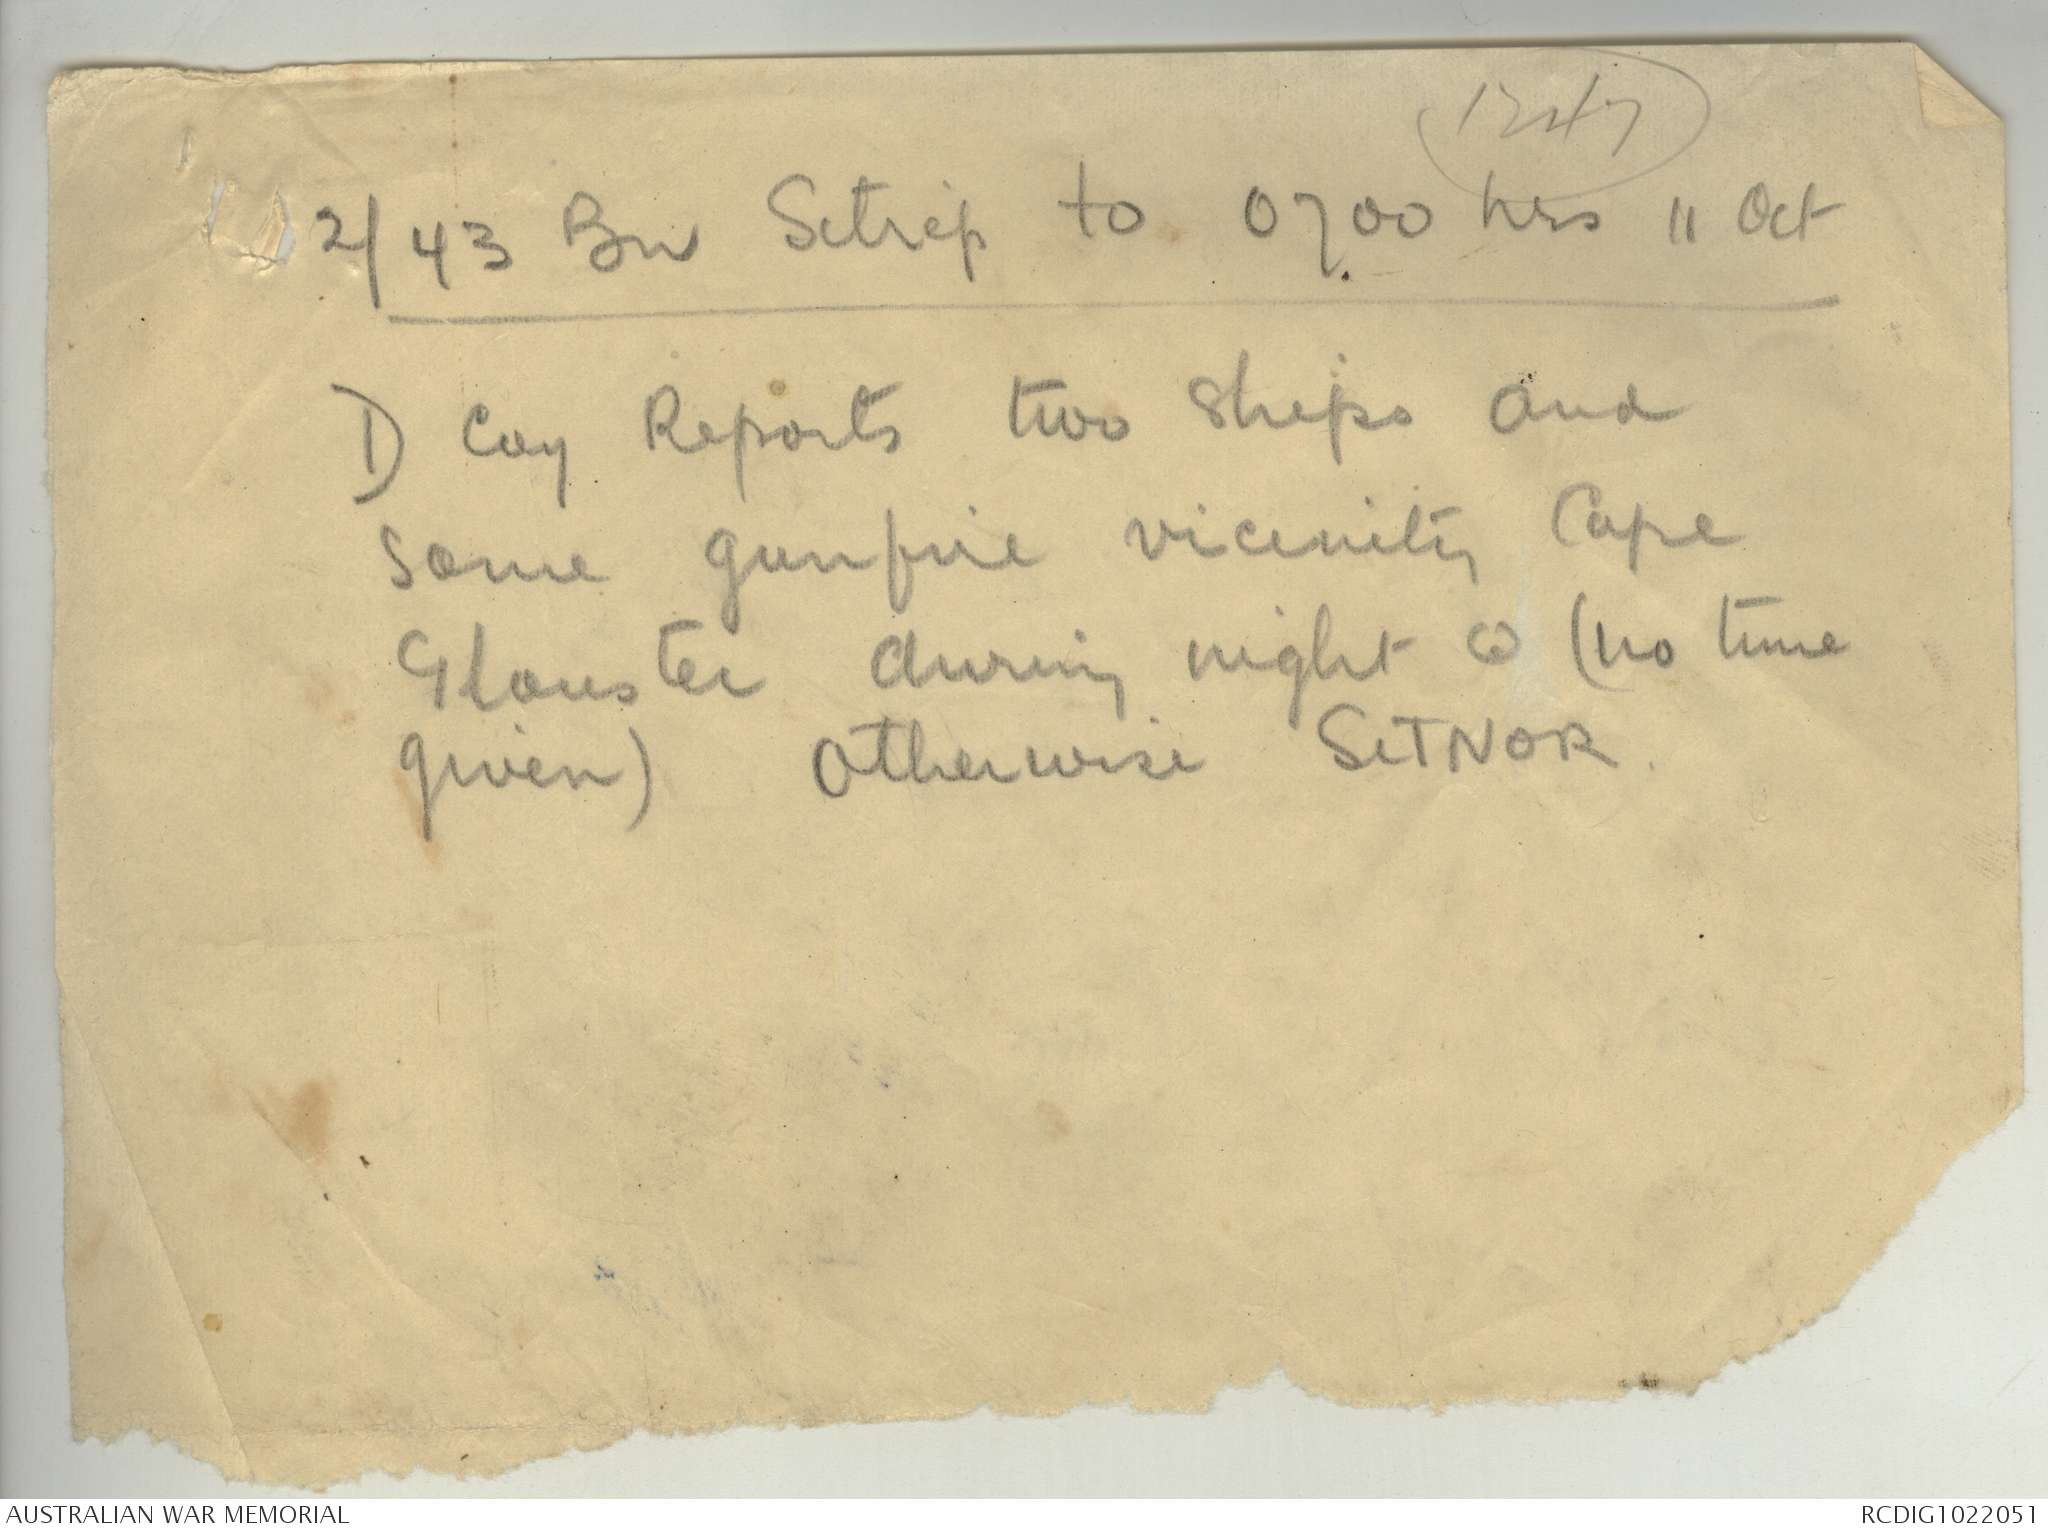 1247
2/43 Bn Sitrep to 0700 hrs 11 Oct
D Coy Reports two ships and
some gunfire vicinity Cape
Glouster during night (no time
given) Otherwise SITNOR.
AUSTRALIAN WAR MEMORIAL
RCDIG1022051